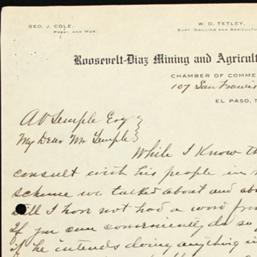 GEO. J. COLE,
PREST. AND MGR.
W. D. TETLEY,
SUPT. GALLINA AND AGRICULTU
Roosevelt-Diaz Mining and Agricult
CHAMBER OF COMME
107 San Francis
EL PASO, T
A V Temple Esq
My Dear Mr Temple
While I Know th
consult with his people in
scheme we talked about and ab
I have not had a word from
If you can conveniently do so
if he intends doing anything in